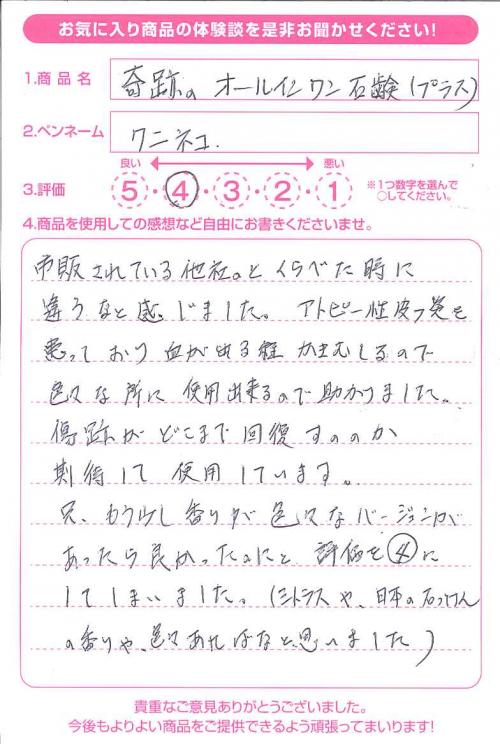 お気に入り商品の体験談を是非お聞かせください!
1.商品名 奇跡のオールインワン石鹸(プラス)
2.ペンネーム ワニネコ.
良い 悪い
3.評価 5・4・3・2・1 ※1つ数字を選んで
○してください。
4.商品を使用しての感想など自由にお書きくださいませ。
市販されている他社のとくらべた時に
違うなと感じました。アトピー性皮フ炎を
患っており血が出る程かきむしるので
色々な所に使用出来るので助かりました。
傷跡がどこまで回復するのか
期待して使用しています。
只、もう少し香りが色々なバージョンが
あったら良かったのにと評価を④に
してしまいました。(シトラスや、日本の石けん
の香りや、色々あればなと思いました)
貴重なご意見ありがとうございました。
今後もよりよい商品をご提供できるよう頑張ってまいります!